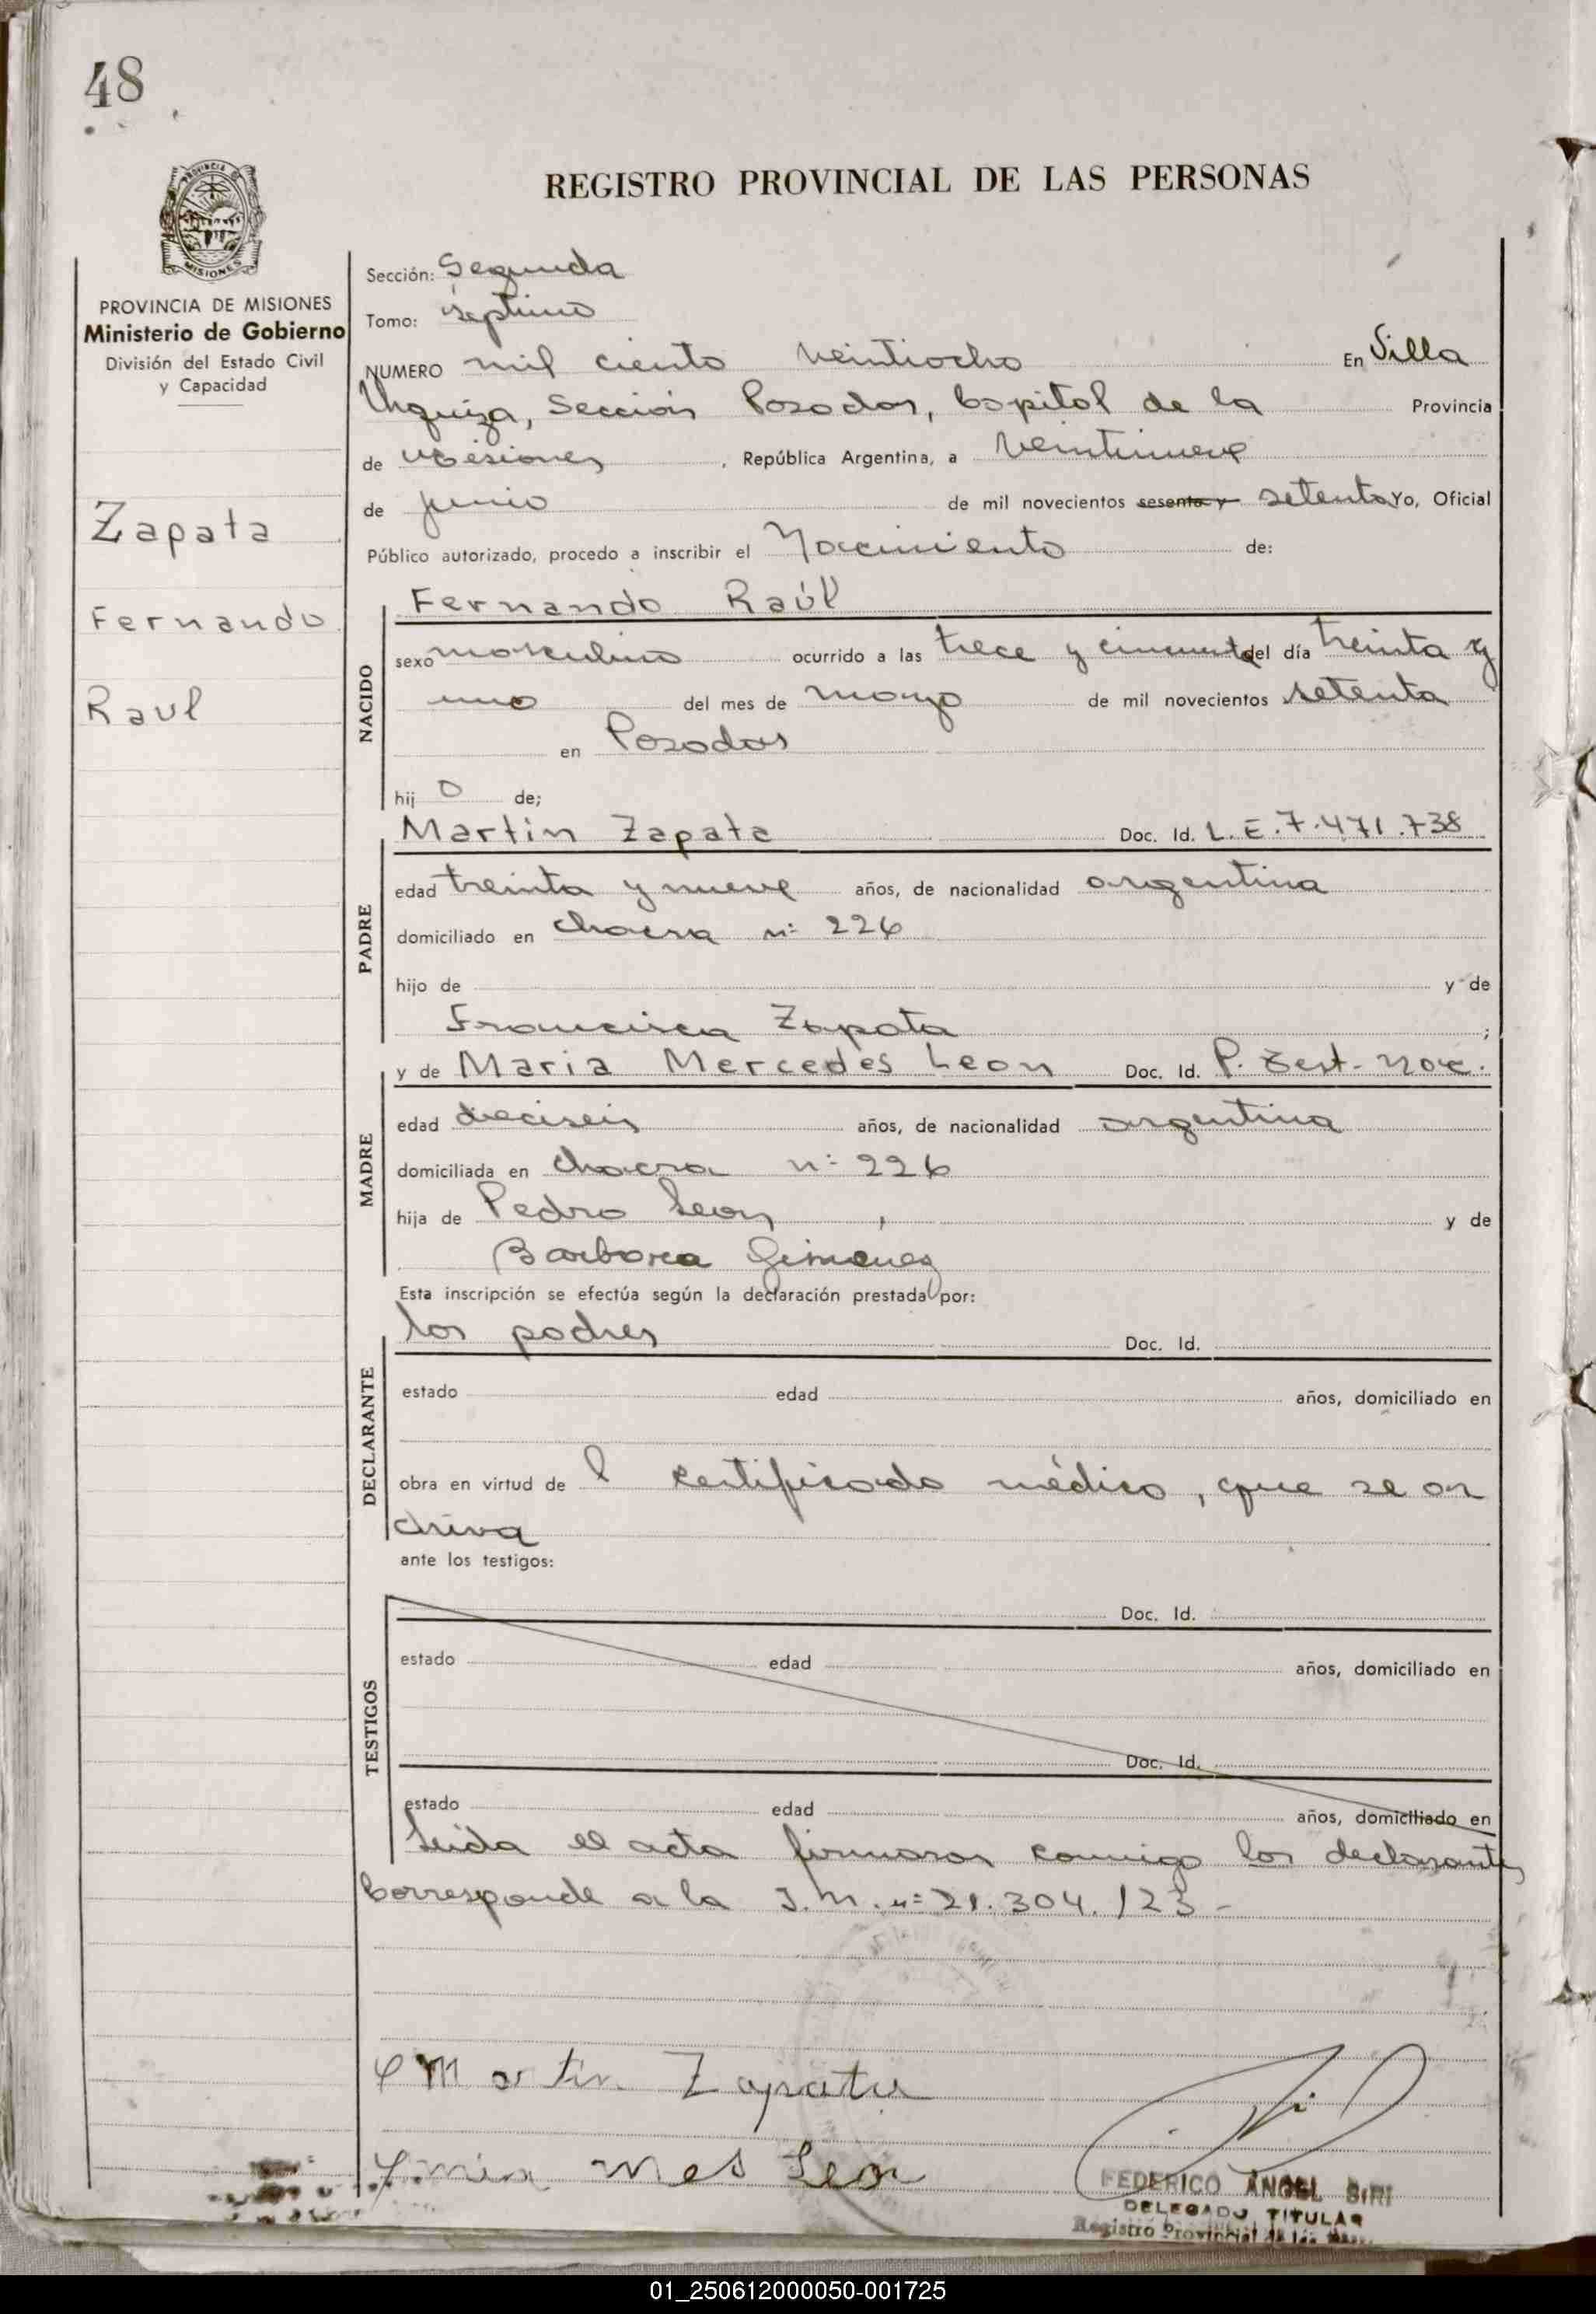 48
PROVINCIA
MISIONES
REGISTRO PROVINCIAL DE LAS PERSONAS
PROVINCIA DE MISIONES
Ministerio de Gobierno
División del Estado Civil
y Capacidad
Zapata
Fernando
Raul
Sección: Segunda
Tomo: septimo
NUMERO mil ciento veintiocho En Villa
Urquiza, Sección Posadas, Capital de la Provincia
de Misiones, República Argentina, a veintinueve
de junio de mil novecientos sesenta y setenta Yo, Oficial
Público autorizado, procedo a inscribir el Nacimiento de:
NACIDO
Fernando Raúl
sexo masculino ocurrido a las trece y cincuenta del día treinta y
uno del mes de marzo de mil novecientos setenta
en Posadas
hij o de;
PADRE
Martin Zapata Doc. Id. L.E.7.471.738
edad treinta y nueve años, de nacionalidad argentina
domiciliado en chacra nº 226
hijo de y de
Francisca Zapata ;
MADRE
y de Maria Mercedes Leon Doc. Id. P. Test. Nac.
edad dieciseis años, de nacionalidad argentina
domiciliada en chacra nº 226
hija de Pedro Leon, y de
Barbora Gimenez
Esta inscripción se efectúa según la declaración prestada por:
DECLARANTE
los padres Doc. Id.
estado edad años, domiciliado en
obra en virtud de l certificado médico, que se ar
chiva
ante los testigos:
TESTIGOS
Doc. Id.
estado edad años, domiciliado en
Doc. Id.
estado edad años, domiciliado en
Leida el acta firmaron conmigo los declarantes
Corresponde a la I.M. nº 21.304./23-
Martin Zapata
Maria Mes Leon
FEDERICO ANGEL SIRI
DELEGADO TITULAR
Registro Provincial de las
01_250612000050-001725